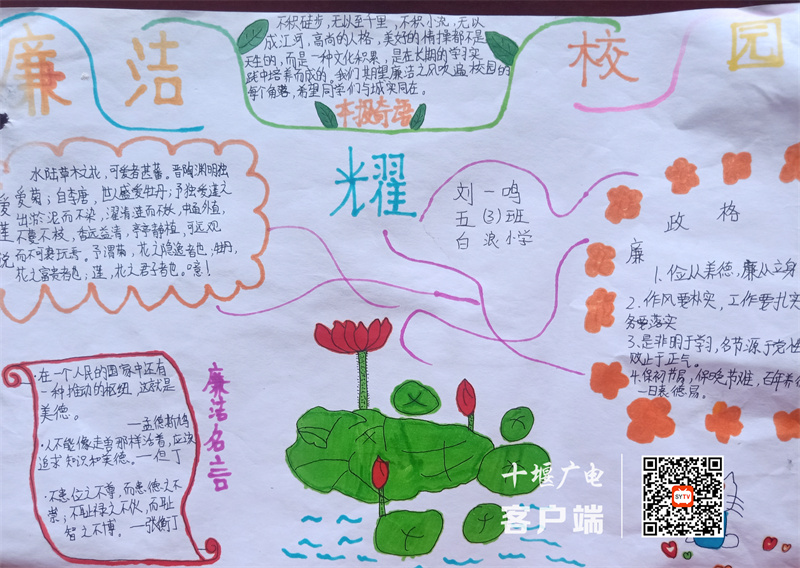 廉洁
耀
校园
不积硅步,无以至千里,不积小流,无以
成江河,高尚的人格,美好的情操都不是
天生的,而是一种文化积累,是在长期的学习实
践中培养而成的。我们期望廉洁之风吹遍校园的
每个角落,希望同学们与城实同在。
本报寄语
爱莲说
水陆草木之花,可爱者甚蕃。晋陶渊明独
爱菊;自李唐,世人盛爱牡丹;予独爱莲之
出淤泥而不染,濯清涟而不妖,中通外直,
不蔓不枝,香远益清,亭亭静植,可远观
而不可亵玩焉。予谓菊,花之隐逸者也,牡丹,
花之富贵者也;莲,花之君子者也。噫!
刘一鸣
五(3)班
白浪小学
政格
廉
1.俭从美德,廉从立身
2.作风要朴实,工作要扎实
务要落实
3.是非明于学习,名节源于党性
败止于正气。
4.保初节易,保晚节难,百年养
一日丧德易。
廉洁名言
·在一个人民的国家中还有
一种推动的枢纽,这就是
美德。
—孟德斯鸠
·人不能像走兽那样活着,应该
追求知识和美德。—但丁
·不患位之不尊,而患德之不
崇;不耻禄之不伙,而耻
智之不博。—张衡
十堰广电
客户端
SYTV